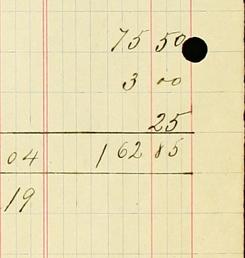 75 50
3 00
25
04 162 85
19